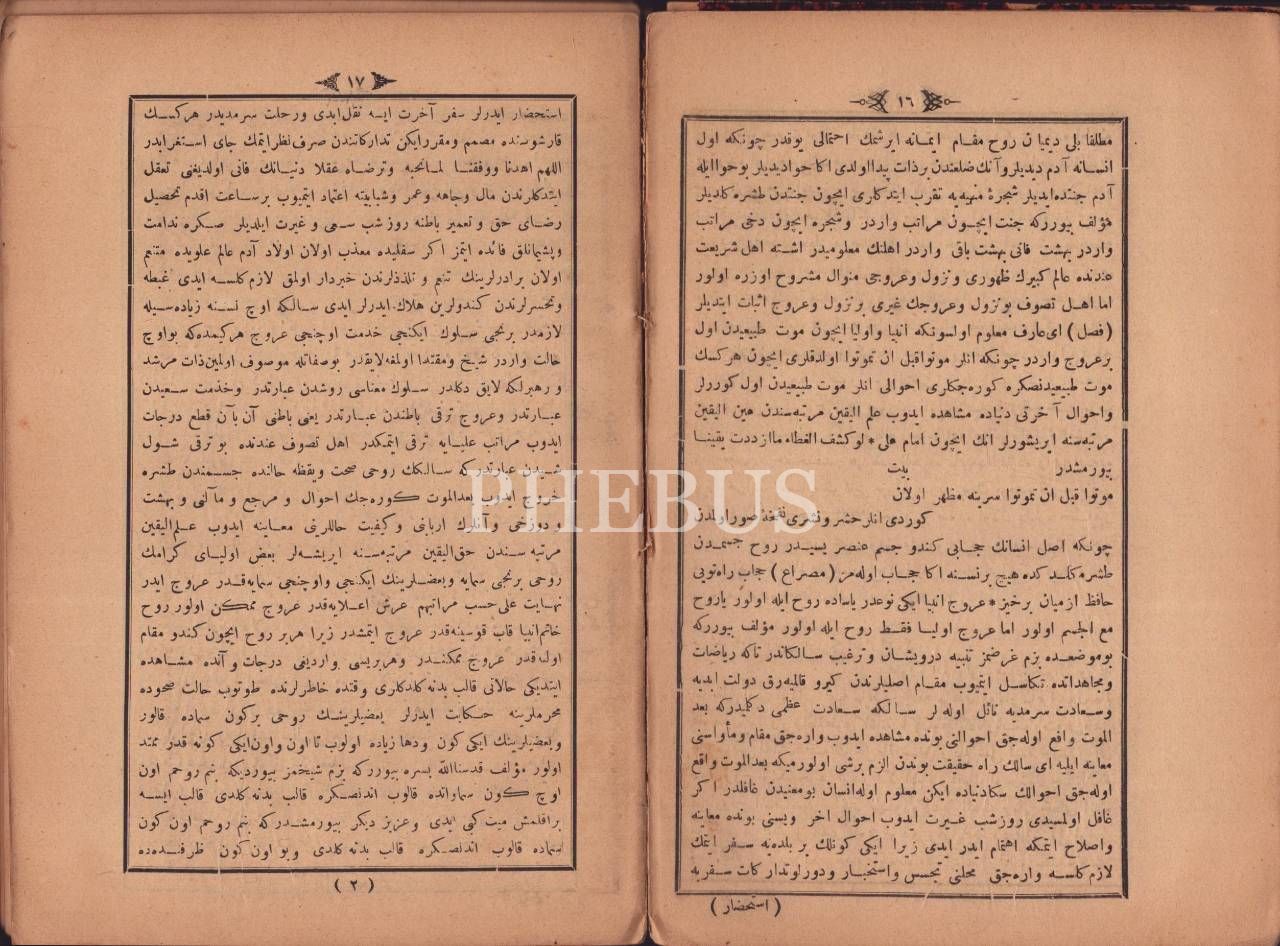 ١٦
مطلقا بلى ديميان روح مقام ايمانه ايرشمك احتمالى يوقدر چونكه اول
انسانه آدم ديديلر وآنك ضلعندن برذات پيدا اولدى اكا حوا ديديلر بو حوا ايله
آدم جنتده ايديلر شجرهٔ منهيه يه تقرب ايتدكلرى ايچون جنتدن طشره كلديلر
مؤلف بيورركه جنت ايچون مراتب واردر وشجره ايچون دخى مراتب
واردر بهشت فانى بهشت باقى واردر اهلنك معلوميدر اشته اهل شريعت
عندنده عالم كبيرك ظهورى ونزول وعروجى منوال مشروح اوزره اولور
اما اهل تصوف بو نزول وعروجك غيرى برنزول وعروج اثبات ايتديلر
(فصل) اى عارف معلوم اولسونكه انبيا واوليا ايچون موت طبيعيدن اول
برعروج واردر چونكه انلر موتوا قبل ان تموتوا اولدقلرى ايچون هركسك
موت طبيعيدنصكره كوره جكلرى احوالى انلر موت طبيعيدن اول كوررلر
واحوال آخرتى دنياده مشاهده ايدوب علم اليقين مرتبه سندن عين اليقين
مرتبه سنه ايريشورلر انك ايچون امام على * لو كشف الغطاء ما ازددت يقينا
بيورمشدر بيت
موتوا قبل ان تموتوا سرينه مظهر اولان
كوردى انلر حشر ونشرى نفخهٔ صور اولمدن
چونكه اصل انسانك حجابى كندو جسم عنصريسيدر روح جسمدن
طشره كلدكده هيچ برنسنه اكا حجاب اوله مز (مصراع) حجاب راه تويى
حافظ ازميان برخيز * عروج انبيا ايكى نوعدر ياساده روح ايله اولور ياروح
مع الجسم اولور اما عروج اوليا فقط روح ايله اولور مؤلف بيورركه
بوموضعده بزم غرضمز تنبيه درويشان وترغيب سالكاندر تاكه رياضات
ومجاهداتده تكاسل ايتميوب مقام اصليلرندن كيرو قالميه رق دولت ابديه
وسعادت سرمديه نائل اوله لر سالكه سعادت عظمى دكلميدركه بعد
الموت واقع اوله جق احوالنى بونده مشاهده ايدوب واره جق مقام ومأواسنى
معاينه ايليه اى سالك راه حقيقت بوندن الزم برشى اولورميكه بعد الموت واقع
اوله جق احوالك سكا دنياده ايكن معلوم اوله انسان بومعنيدن غافلدر اكر
غافل اولمسيدى روزشب غيرت ايدوب احوال اخرويسنى بونده معاينه
واصلاح ايتمكه اهتمام ايدر ايدى زيرا ايكى كونلك بر بلده يه سفر ايتمك
لازم كلسه واره جق محلنى تجسس واستخبار ودورلو تداركات سفريه
(استحضار)
١٧
استحضار ايدرلر سفر آخرت ايسه نقل ابدى ورحلت سرمديدر هركسك
قارشوسنده مصمم ومقرر ايكن تداركاتندن صرف نظر ايتمك جاى استغرابدر
اللهم اهدنا ووفقنا لما تحبه وترضاه عقلا دنيانك فانى اولديغنى تعقل
ايتدكلرندن مال وجاهه وعمر وشبابيته اعتماد ايتميوب برساعت اقدم تحصيل
رضاى حق وتعمير باطنه روزشب سعى وغيرت ايلديلر صكره ندامت
وپشيمانلق فائده ايتمز اكر سفليده معذب اولان اولاد آدم عالم علويده متنعم
اولان برادرلرينك تنعم وتلذذلرندن خبردار اولمق لازم كلسه ايدى غبطه
وتحسرلرندن كندولرين هلاك ايدرلر ايدى سالكه اوچ نسنه زياده سيله
لازمدر برنجى سلوك ايكنجى خدمت اوچنجى عروج هر كيمده كه بو اوچ
حالت واردر شيخ ومقتدا اولمغه لايقدر بوصفاتله موصوف اولمين ذات مرشد
ورهبرلكه لايق دكلدر سلوك معناسى روشدن عبارتدر وخدمت سعيدن
عبارتدر وعروج ترقى باطندن عبارتدر يعنى باطنى آن بآن قطع درجات
ايدوب مراتب عليايه ترقى ايتمكدر اهل تصوف عندنده بو ترقى شول
شيدن عبارتدركه سالكك روحى صحت ويقظه حالنده جسمندن طشره
خروج ايدوب بعد الموت كوره جك احوال ومرجع ومآلنى وبهشت
ودوزخى وآنلرك اربابنى وكيفيت حاللرينى معاينه ايدوب علم اليقين
مرتبه سندن حق اليقين مرتبه سنه ايريشه لر بعض اوليــاى كرامك
روحى برنجى سمايه وبعضلرينك ايكنجى واوچنجى سمايه قدر عروج ايدر
نهايت على حسب مراتبهم عرش اعلايه قدر عروج ممكن اولور روح
خاتم انبيا قاب قوسينه قدر عروج ايتمشدر زيرا هر بر روح ايچون كندو مقام
اولنه قدر عروج ممكندر وهر بريسى وارديغى درجات وآنده مشاهده
ايتديكى حالاتى قالب بدنه كلدكلرى وقتده خاطرلرنده طوتوب حالت صحوده
محرملرينه حكايت ايدرلر بعضيلرينك روحى بركون سماده قالور
وبعضيلرينك ايكى كون ودها زياده اولوب تا اون واون ايكى كونه قدر ممتد
اولور مؤلف قدسنا الله بسره بيورركه بزم شيخمز بيورديكه بنم روحم اون
اوچ كون سماواتده قالوب اندنصكره قالب بدنه كلدى قالب ايسه
براقلمش ميت كبى ايدى وعزيز ديكر بيورمشدركه بنم روحم اون كون
سماده قالوب اندنصكره قالب بدنه كلدى وبو اون كون ظرفنده ده
(٢)
PHEBUS